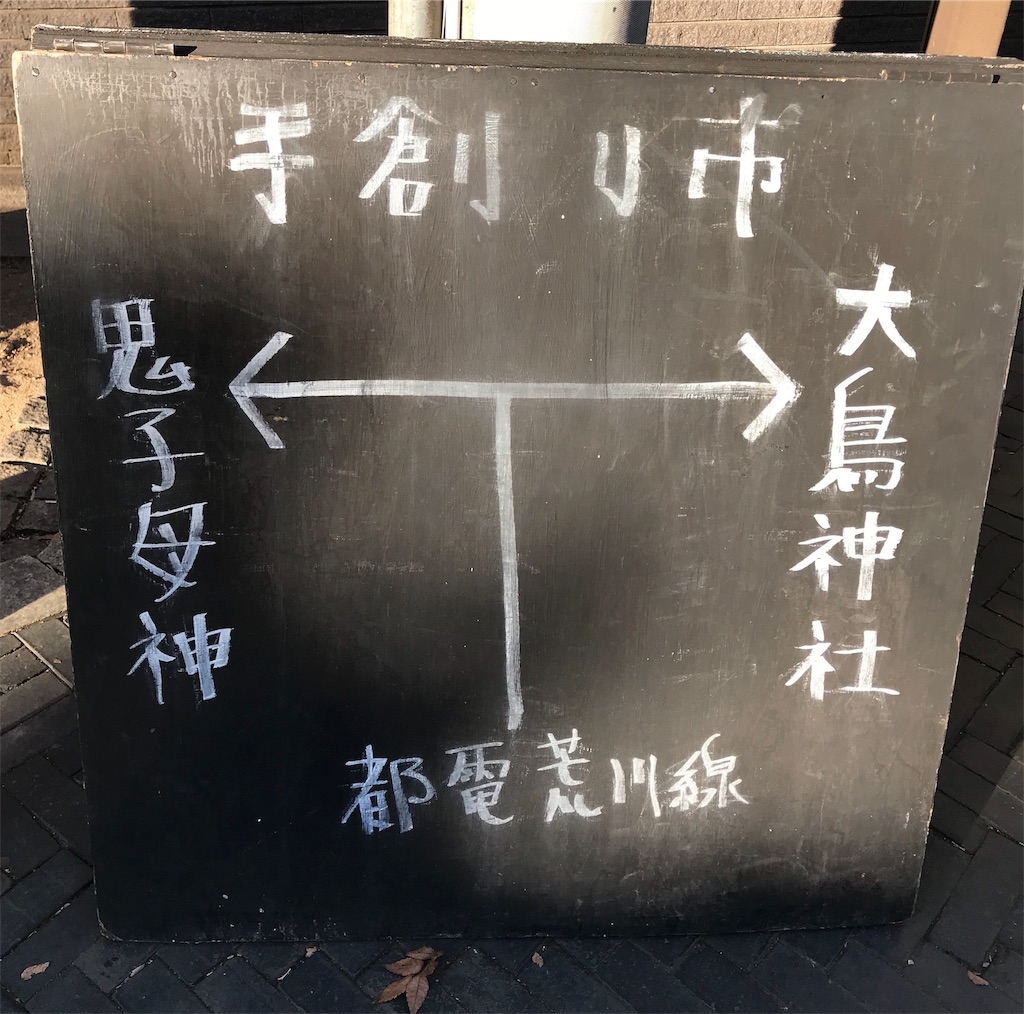 手創り市
大鳥神社
鬼子母神
都電荒川線